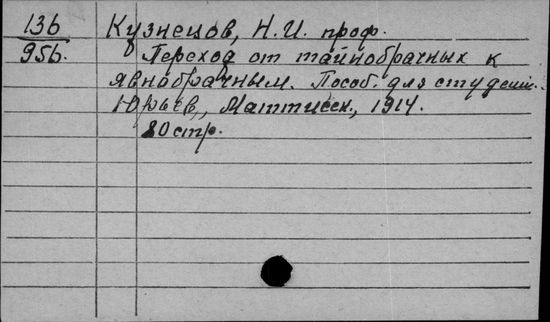 136 Кузнецов, Н.И. проф.
956. Переход от тайнобрачных к
явнобрачным. Пособ. для студент.
Юрьев, Маттисен, 1914.
80 стр.